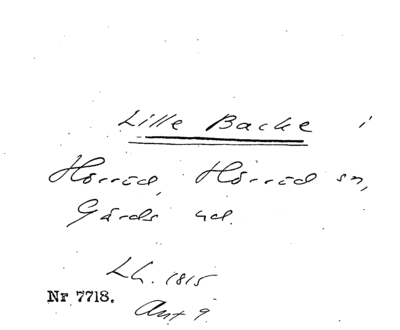 Lille Backe i
Hörröd, Hörröd sn,
Gärds hd.
Lh. 1815
Nr 7718.
Akt 9.